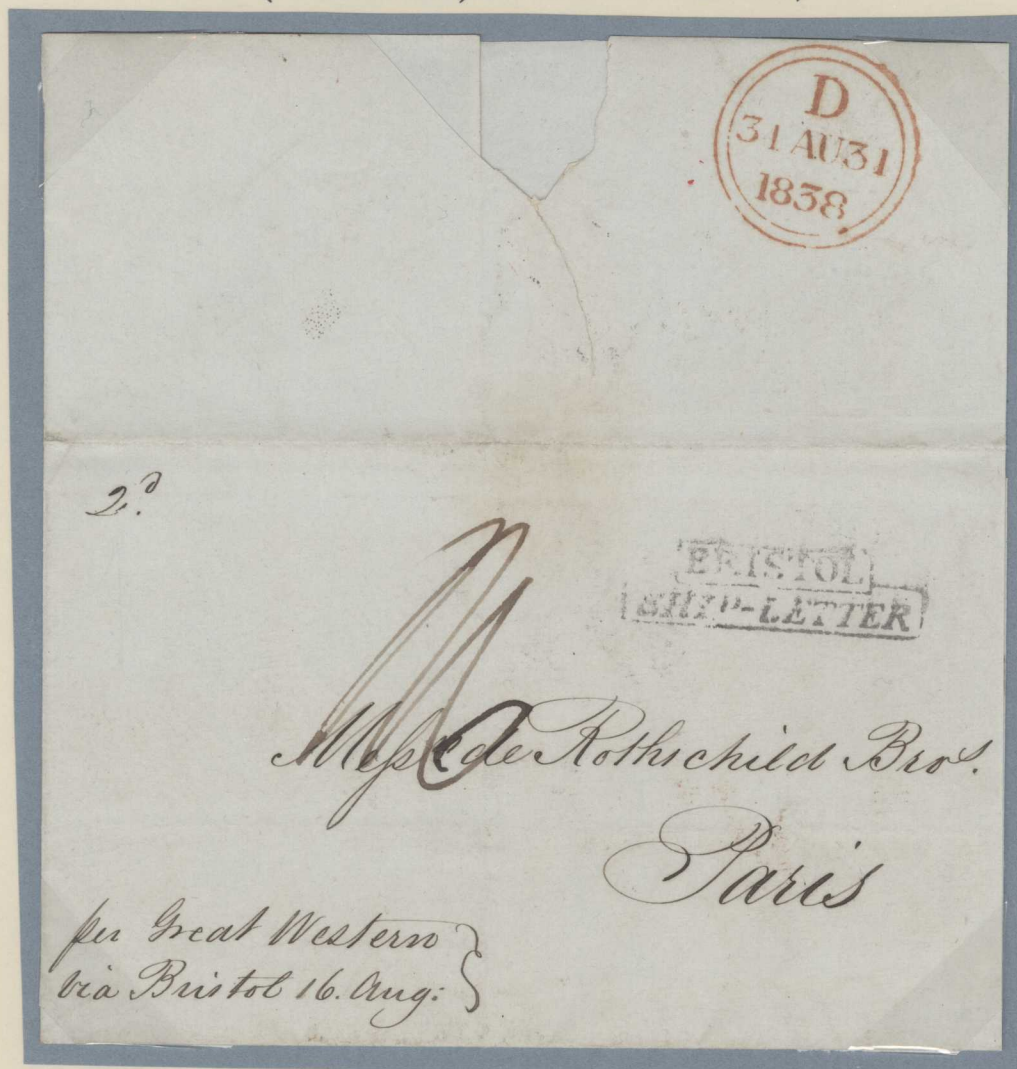 D
31 AU31
1838
2d
BRISTOL
SHIP-LETTER
Messrs de Rothschild Bros.
Paris
per Great Western
via Bristol 16. Aug: